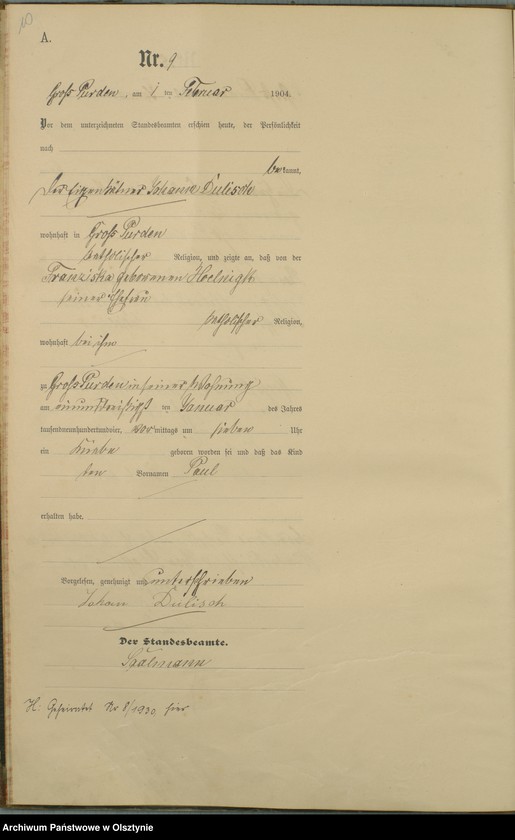 10
A.
Nr. 9
Groß Purden, am 1 ten Februar 1904.
Vor dem unterzeichneten Standesbeamten erschien heute, der Persönlichkeit
nach
bekannt,
Der Eigenkätner Johann Dulisch
wohnhaft in Groß Purden
katholischer Religion, und zeigte an, daß von der
Franziska geborenen
seiner Ehefrau
katholischer Religion,
wohnhaft bei ihm
zu Groß Purden in seiner Wohnung
am einunddreißigst ten Januar des Jahres
tausendneunhundertundvier, vormittags um sieben Uhr
ein Knabe geboren worden sei und daß das Kind
den Vornamen Paul
erhalten habe.
Vorgelesen, genehmigt und unterschrieben
Johan Dulisch
Der Standesbeamte.
H: Geheiratet Nr 8/1930 hier
Archiwum Państwowe w Olsztynie